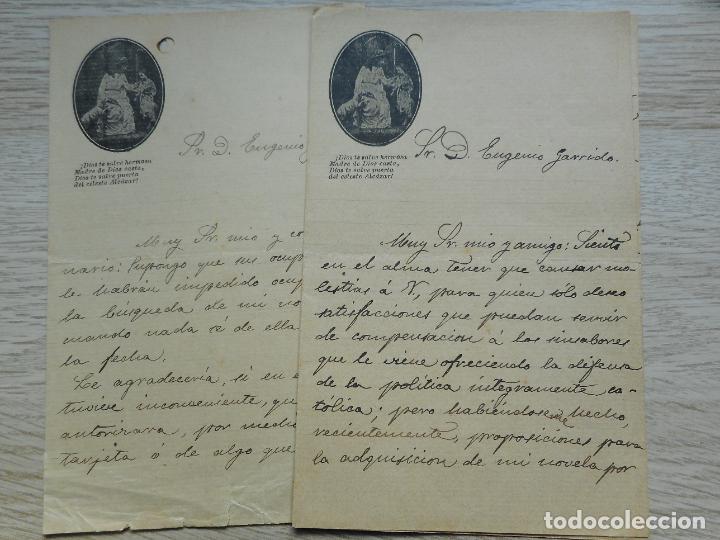 ¡Dios te salve hermosa
Madre de Dios casta,
Dios te salve puerta
del celeste Alcázar!
Sr. D. Eugenio
Muy Sr. mio y co
nario: Supongo que sus ocup
le habrán impedido ocup
la búsqueda de mi no
mando nada sé de ella
la fecha.
Le agradecería, si en e
tuviese inconveniente, que
autorizara, por medio
tarjeta ó de algo que
¡Dios te salve hermosa
Madre de Dios casta,
Dios te salve puerta
del celeste Alcázar!
Sr. D. Eugenio Garrido.
Muy Sr. mio y amigo: Siento
en el alma tener que causar mo-
lestias á V, para quien sólo deseo
satisfacciones que puedan servir
de compensacion á los sinsabores
que le viene ofreciendo la defensa
de la política integramente ca-
tólica; pero habiéndoseme hecho,
recientemente, proposiciones para
la adquisicion de mi novela por
todocoleccion.net